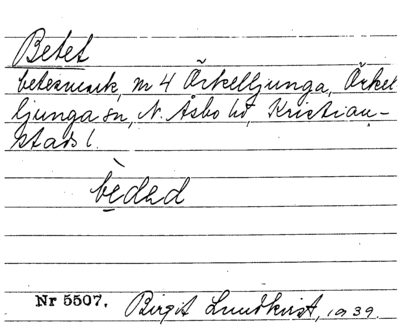 Betet
betesmark, m 4 Örkelljunga, Örkel
ljunga sn, N. Åsbo hd, Kristian-
stads l.
bèded
Nr 5507. Birgit Lundkvist, 1939.